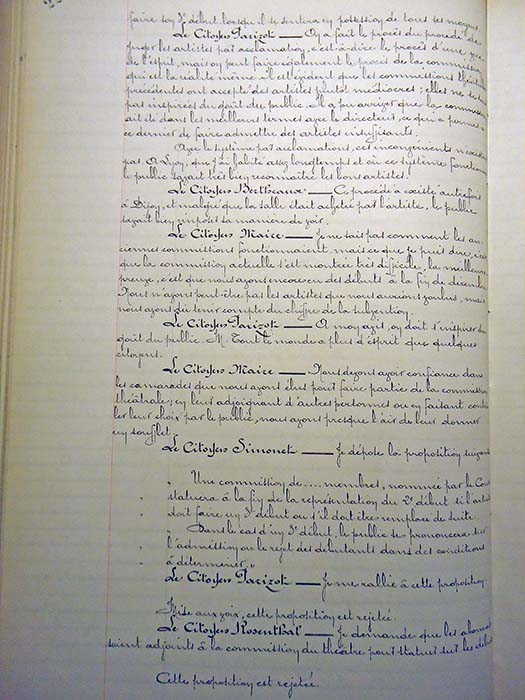 faire son 3e début lorsqu'il se sentira en possession de tous ses moyens.
Le Citoyen Parizot — On a fait le procès du procédé de
juger les artistes par acclamation, c'est-à-dire le procès d'une
de l'esprit, mais on peut faire également le procès de la commission
qui est la réalité même. Il est évident que les commissions théâtrales
précédentes ont accepté des artistes plutôt médiocres; elles ne se sont
pas inspirées du goût du public. Il a pu arriver que la commission
ait été dans les meilleurs termes avec le directeur, ce qui a permis à
ce dernier de faire admettre des artistes insuffisants.
Avec le système par acclamations, ces inconvénients n'existent
pas. A Lyon, que j'ai habité assez longtemps et où ce système fonctionne
le public savait très bien reconnaître les bons artistes.
Le Citoyen Bertheaux — Ce procédé a existé autrefois
à Dijon, et malgré que la salle était achetée par l'artiste, le public
savait bien imposer sa manière de voir.
Le Citoyen Maire — Je ne sais pas comment les an-
ciennes commissions fonctionnaient, mais ce que je puis dire, c'est
que la commission actuelle s'est montrée très difficile; la meilleure
preuve, c'est que nous avons encore eu des débuts à la fin de décembre
Nous n'avons peut-être pas les artistes que nous aurions voulus, mais
nous avons dû tenir compte du chiffre de la subvention.
Le Citoyen Parizot — A mon avis, on doit s'inspirer du
goût du public. M. Tout le monde a plus d'esprit que quelques
citoyens.
Le Citoyen Maire — Nous devons avoir confiance dans
les camarades que nous avons élus pour faire partie de la commission
théâtrale; en leur adjoignant d'autres personnes ou en faisant contrô-
ler leur choix par le public, nous avons presque l'air de leur donner
un soufflet.
Le Citoyen Simonet — Je dépose la proposition suivante
" Une commission de .... membres, nommée par le Conseil
" statuera à la fin de la représentation du 2e début si l'artiste
" doit faire un 3e début ou s'il doit être remplacé de suite.
" Dans le cas d'un 3e début, le public se prononcera sur
" l'admission ou le rejet des débutants dans des conditions
" à déterminer. "
Le Citoyen Parizot — Je me rallie à cette proposition.
Mise aux voix, cette proposition est rejetée.
Le Citoyen Rosenthal — Je demande que les abonnés
soient adjoints à la commission du théâtre pour statuer sur les débuts
Cette proposition est rejetée.